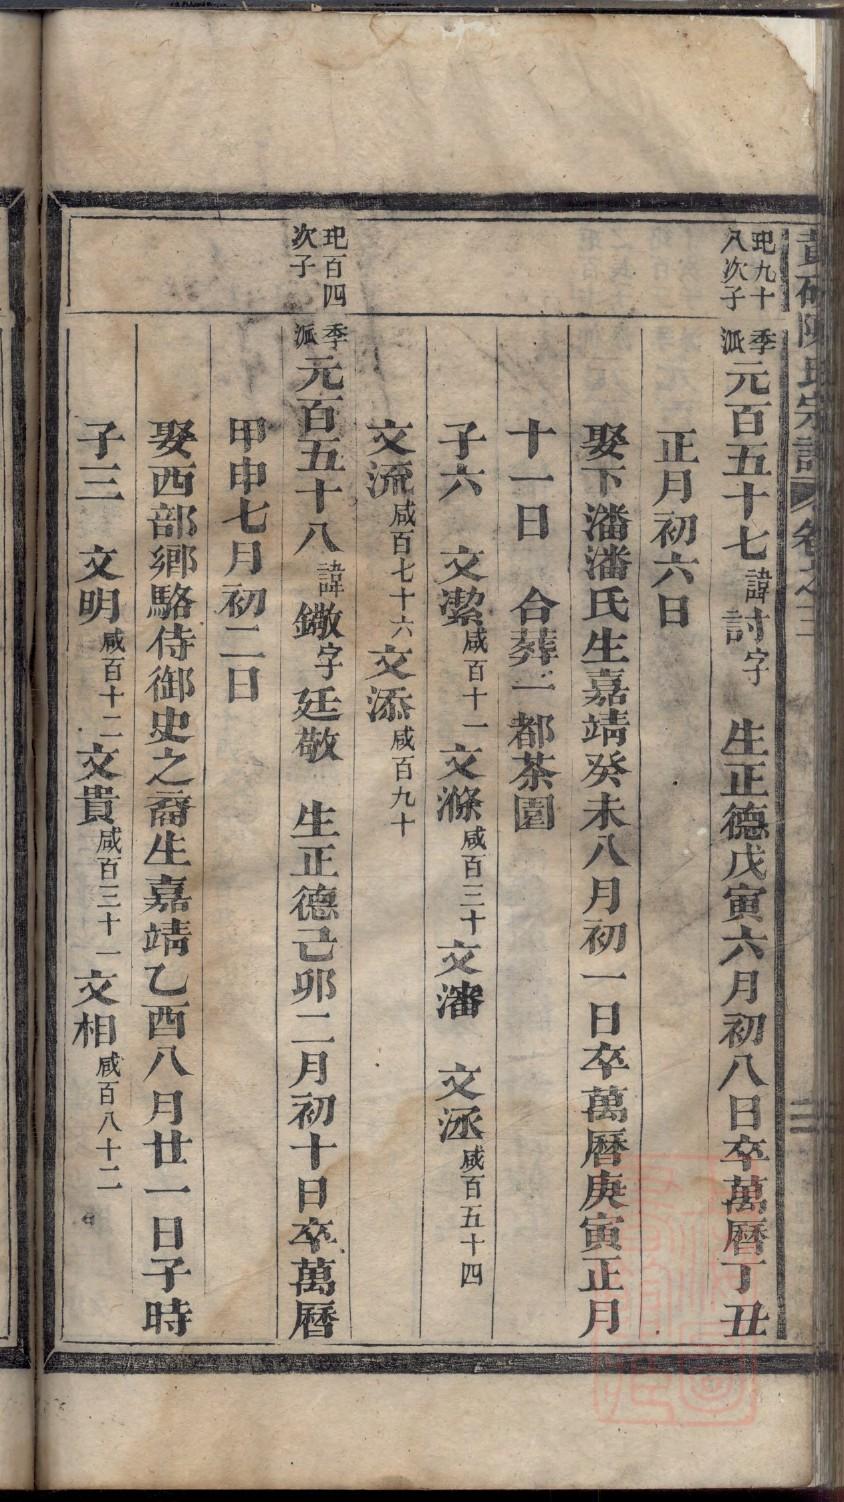 陳氏宗譜 卷之三
圯九十八次子
季派元百五十七諱討字 生正德戊寅六月初八日卒萬曆丁丑
正月初六日
娶下潘潘氏生嘉靖癸未八月初一日卒萬曆庚寅正月
十一日 合葬二都茶園
子六 文潔咸百十一文滌咸百三十文瀋 文丞咸百五十四
文流咸百七十六文添咸百九十
圯百四次子
季派元百五十八諱鏾字廷敬 生正德己卯二月初十日卒萬曆
甲申七月初二日
娶西部鄉駱侍御史之裔生嘉靖乙酉八月廿一日子時
子三 文明咸百十二文貴咸百三十一文相咸百八十二